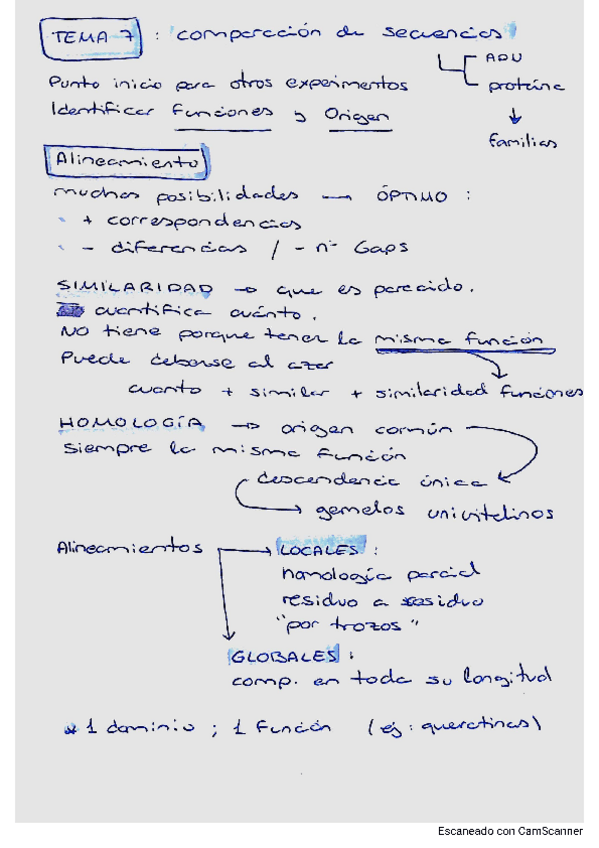 TEMA 7 : comparación de secuencias
ADN
proteína
familias
Punto inicio para otros experimentos
Identificar funciones y Origen
Alineamiento
muchas posibilidades → ÓPTIMO :
+ correspondencias
- diferencias / - nº Gaps
SIMILARIDAD → que es parecido.
cuantifica cuánto.
NO tiene porque tener la misma función
Puede deberse al azar
cuanto + similar + similaridad funciones
HOMOLOGÍA → origen común
siempre la misma función
descendencia única
gemelos univitelinos
Alineamientos → LOCALES :
homología parcial
residuo a residuo
"por trozos"
GLOBALES :
comp. en toda su longitud
* 1 dominio ; 1 función (ej : queratinas)
Escaneado con CamScanner